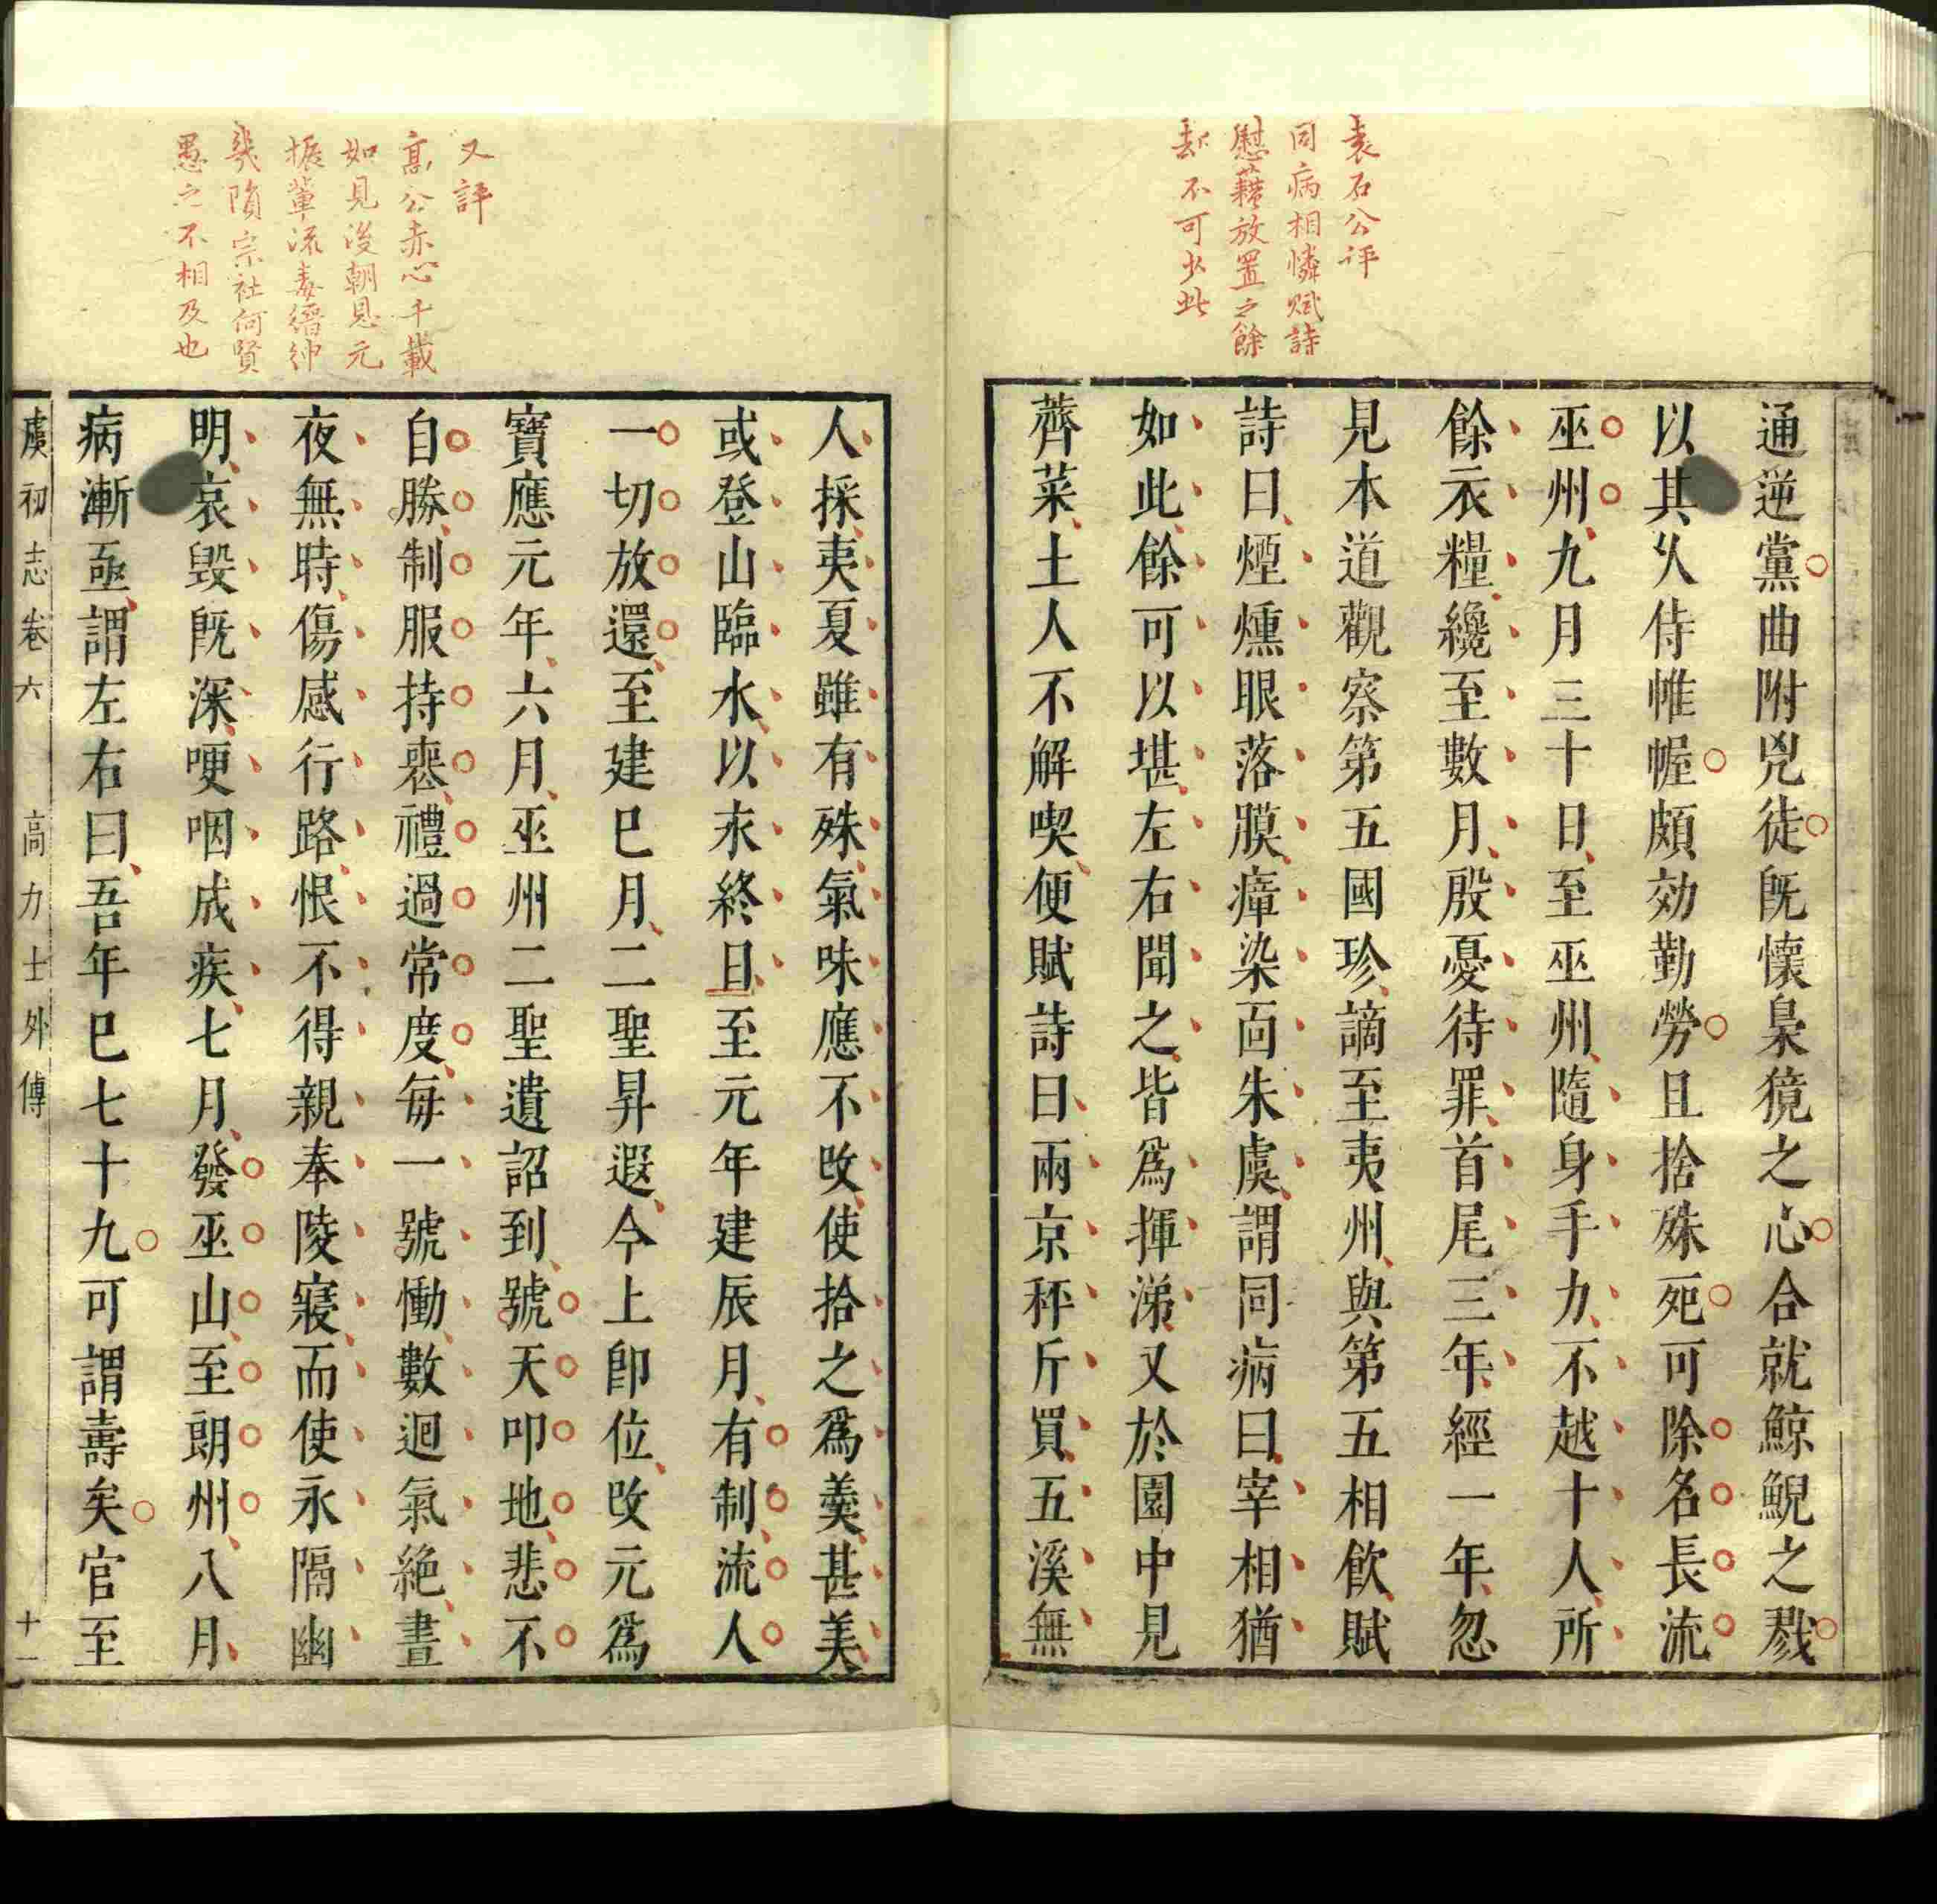 袁石公评
同病相憐賦詩
慰藉放置之餘
却不可少此
通逆黨曲附兇徒既懷梟獍之心合就鯨鯢之戮
以其久侍帷幄頗効勤勞且捨殊死可除名長流
巫州九月三十日至巫州隨身手力不越十人所
餘衣糧纔至數月殷憂待罪首尾三年經一年忽
見本道觀察第五國珍謫至夷州與第五相飲賦
詩曰煙燻眼落膜瘴染面朱虞謂同病曰宰相猶
如此餘可以堪左右聞之皆爲揮涕又於園中見
薺菜土人不解喫便賦詩曰兩京秤斤買五溪無
又評
高公赤心千載
如見後朝恩元
振輩流毒縉紳
幾隕宗社何賢
愚之不相及也
人採夷夏雖有殊氣味應不改使拾之爲羹甚美
或登山臨水以永終日至元年建辰月有制流人
一切放還至建巳月二聖昇遐今上卽位改元爲
寶應元年六月巫州二聖遺詔到號天叩地悲不
自勝制服持喪禮過常度每一號慟數迴氣絶晝
夜無時傷感行路恨不得親奉陵寢而使永隔幽
明哀毀既深哽咽成疾七月發巫山至朗州八月
病漸亟謂左右曰吾年巳七十九可謂壽矣官至
虞初志卷六 高力士外傳 十一